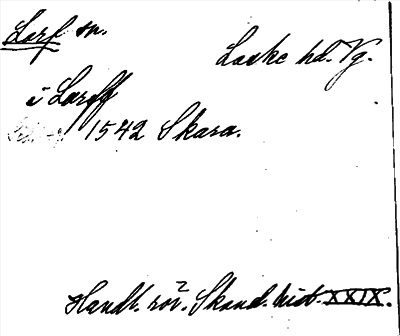 Larf sn.
Laske hd. Vg.
i Larff
1542 Skara.
Handl. rör. Skand. hist. XXIX.